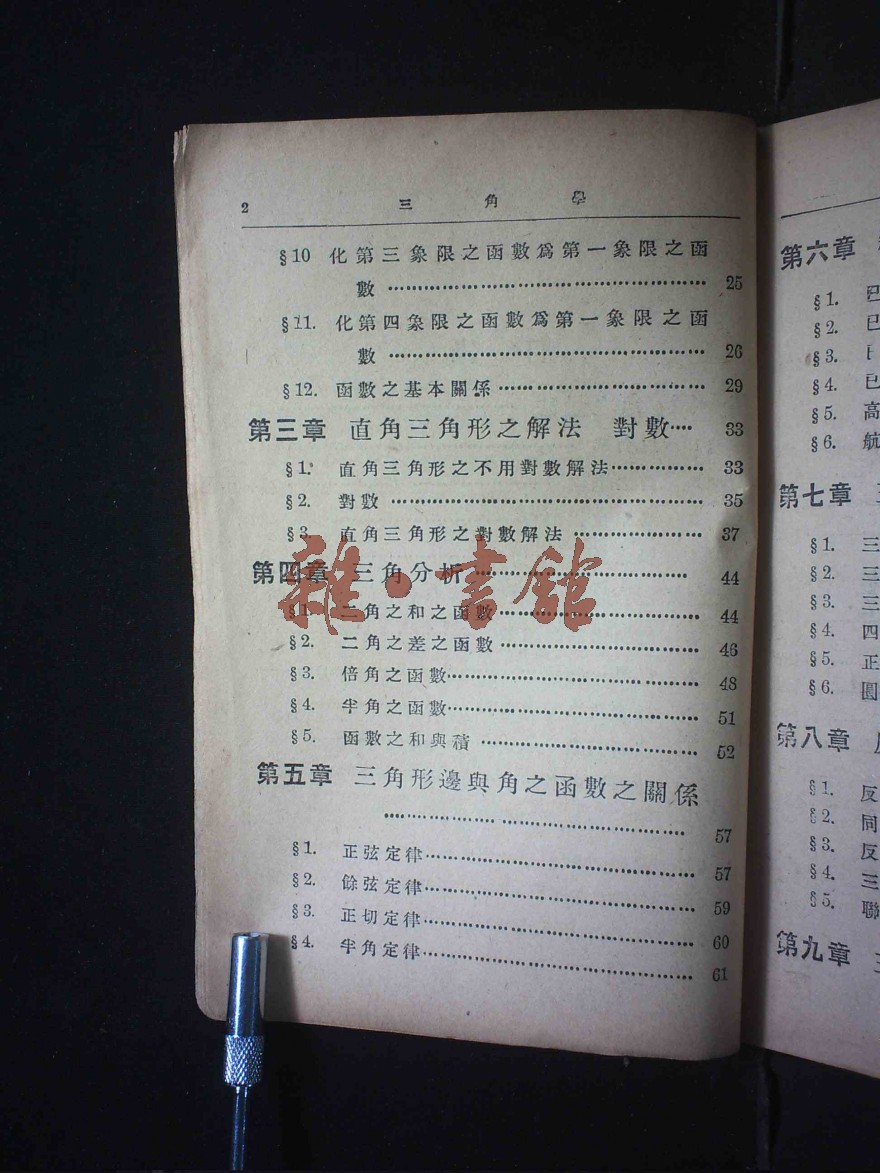 2 三角學
§10 化第三象限之函數爲第一象限之函
數 25
§11. 化第四象限之函數爲第一象限之函
數 26
§12. 函數之基本關係 29
第三章 直角三角形之解法 對數 33
§1. 直角三角形之不用對數解法 33
§2. 對數 35
§3. 直角三角形之對數解法 37
第四章 三角分析 44
§1. 二角之和之函數 44
§2. 二角之差之函數 46
§3. 倍角之函數 48
§4. 半角之函數 51
§5. 函數之和與積 52
第五章 三角形邊與角之函數之關係
57
§1. 正弦定律 57
§2. 餘弦定律 59
§3. 正切定律 60
§4. 半角定律 61
雜·書館
第六章
§1. 已
§2. 已
§3.
§4. 已
§5. 高
§6. 航
第七章
§1. 三
§2. 三
§3. 三
§4. 四
§5. 正
§6. 圓
第八章
§1. 反
§2. 同
§3. 反
§4. 三
§5. 聯
第九章